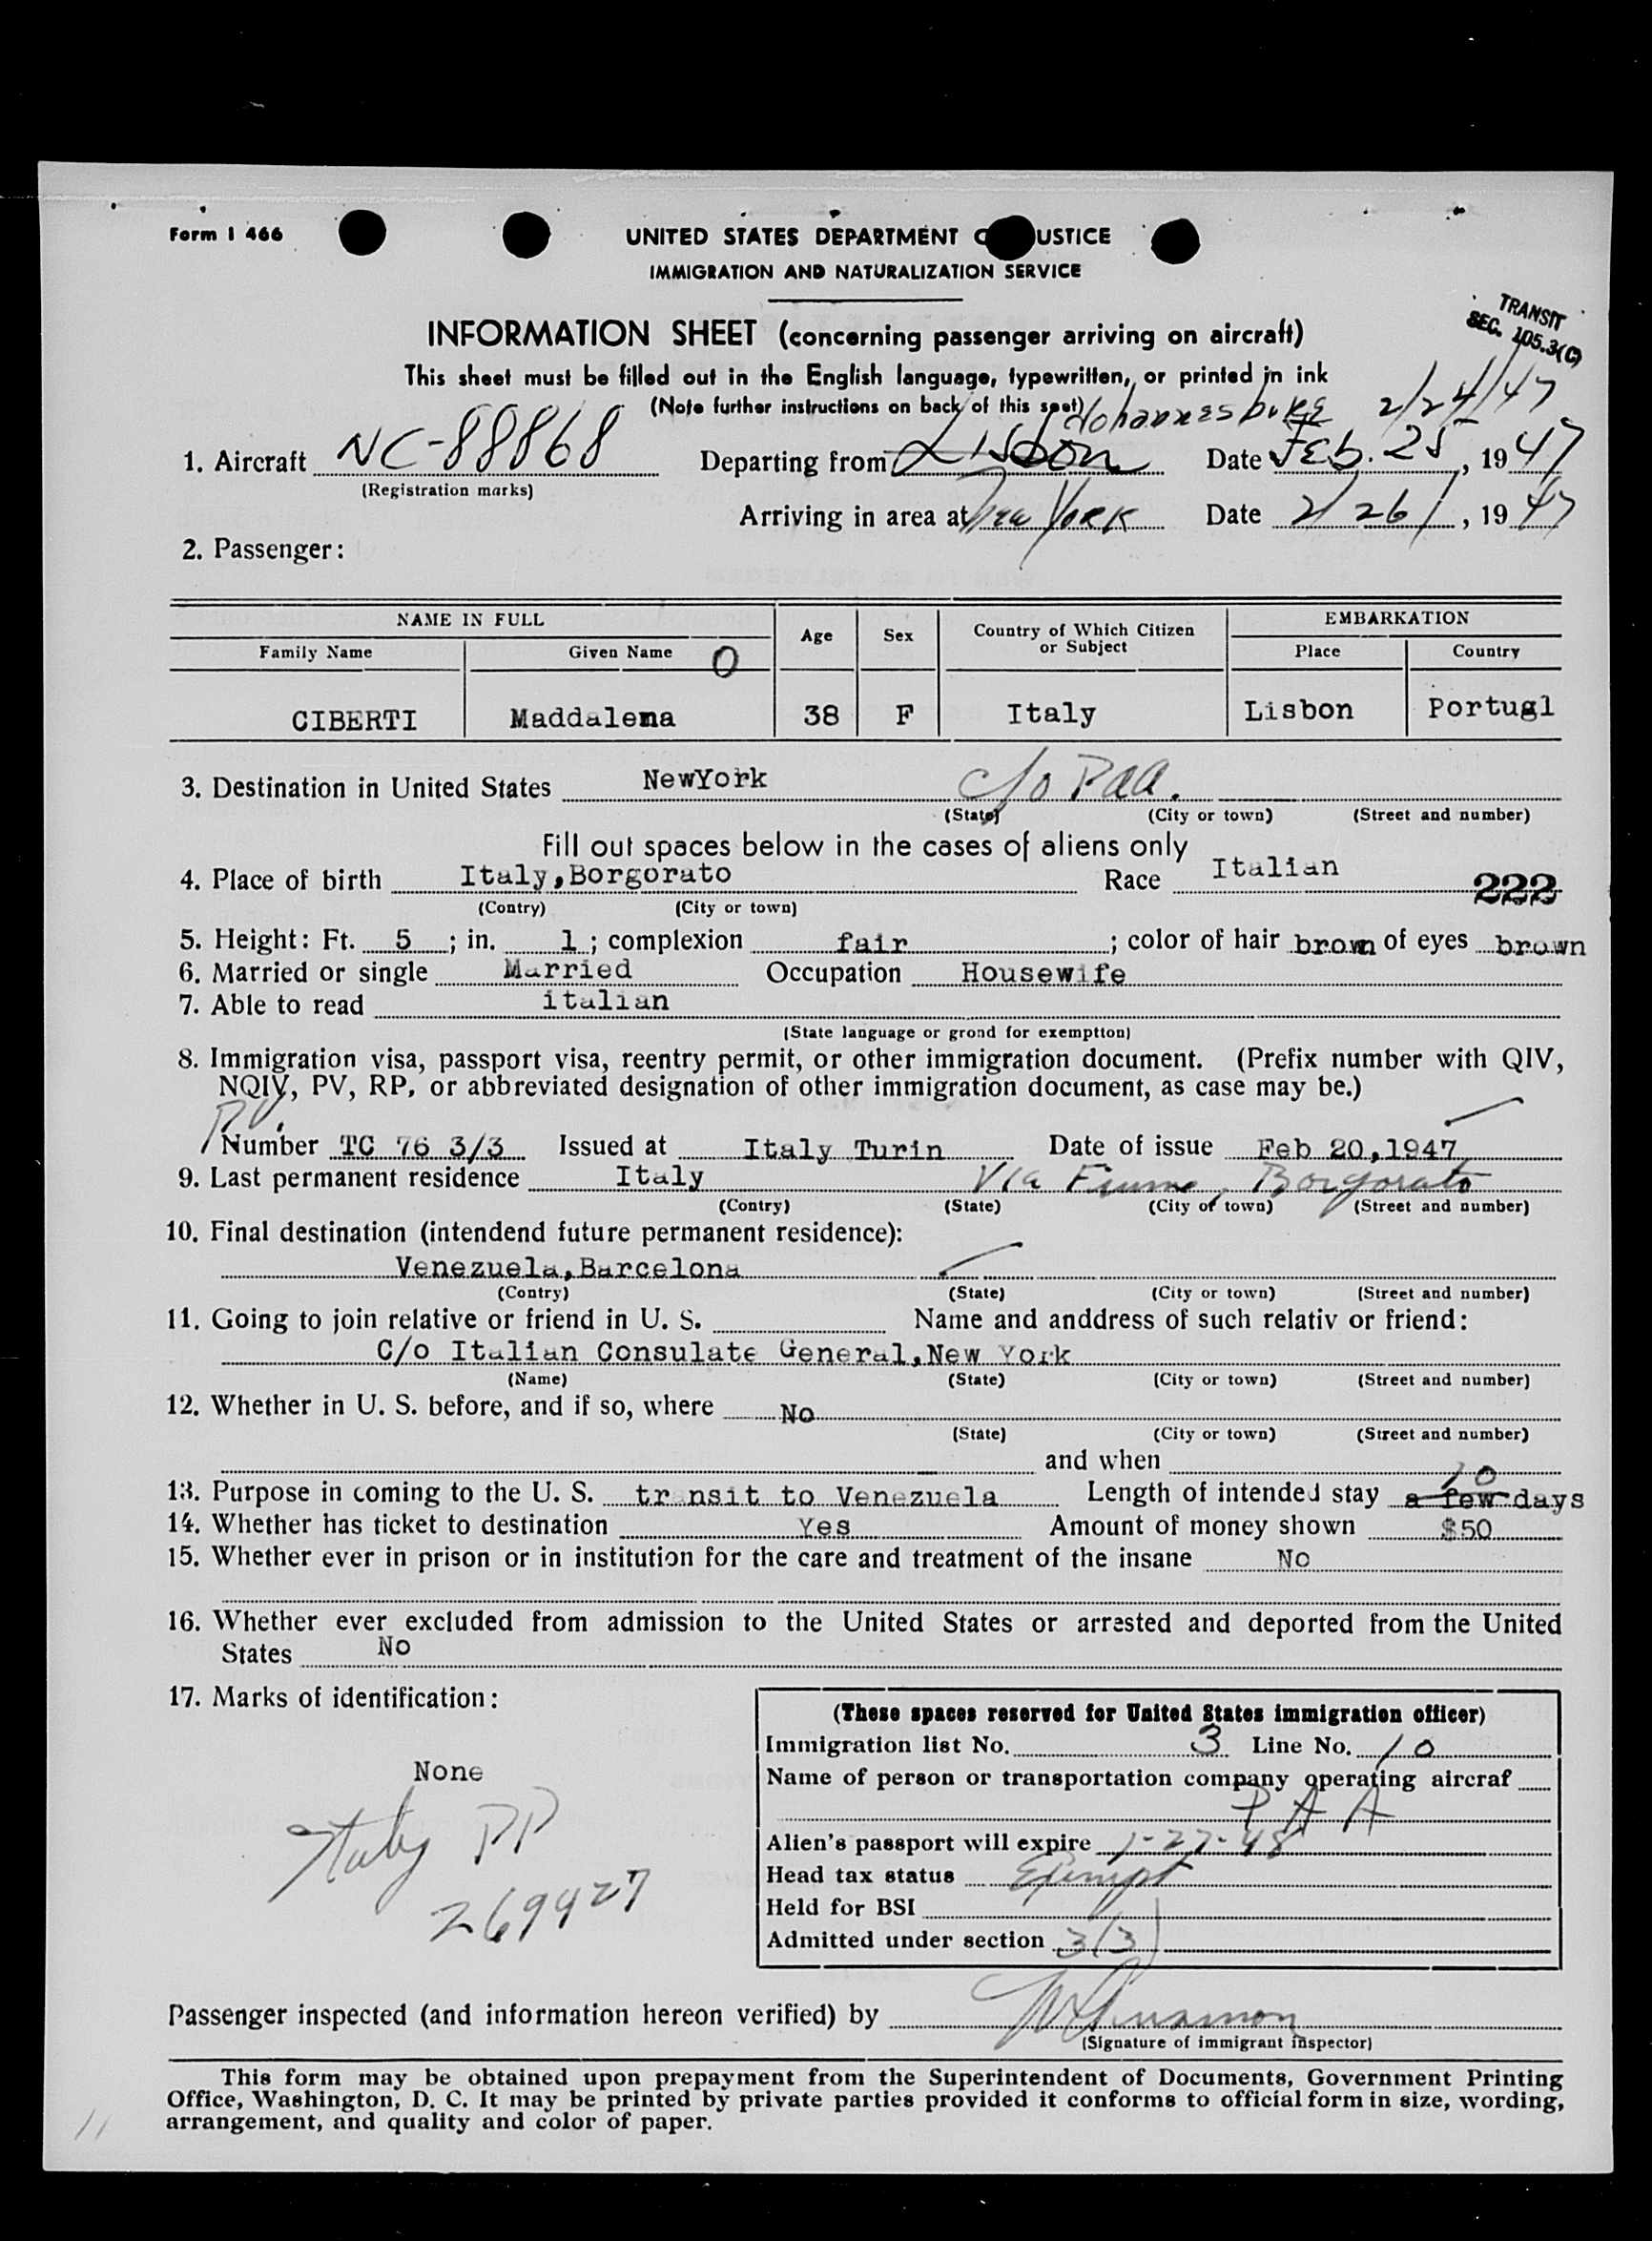 Form I 466
UNITED STATES DEPARTMENT O USTICE
IMMIGRATION AND NATURALIZATION SERVICE
TRANSIT
SEC. 105.3(C)
INFORMATION SHEET (concerning passenger arriving on aircraft)
This sheet must be filled out in the English language, typewritten, or printed in ink
(Note further instructions on back of this seet) Johannesburg 2/24/47
1. Aircraft NC-88868 Departing from Lisbon Date Feb. 25, 1947
(Registration marks)
Arriving in area at New York Date 2/26/, 1947
2. Passenger:
NAME IN FULL Age Sex Country of Which Citizen or Subject EMBARKATION
Family Name Given Name O Place Country
CIBERTI Maddalena 38 F Italy Lisbon Portugl
3. Destination in United States NewYork c/o Paa.
(State) (City or town) (Street and number)
Fill out spaces below in the cases of aliens only
4. Place of birth Italy,Borgorato Race Italian 222
(Contry) (City or town)
5. Height: Ft. 5; in. 1; complexion fair; color of hair brown of eyes brown
6. Married or single Married Occupation Housewife
7. Able to read italian
(State language or grond for exemption)
8. Immigration visa, passport visa, reentry permit, or other immigration document. (Prefix number with QIV,
NQIV, PV, RP, or abbreviated designation of other immigration document, as case may be.)
PV.
Number TC 76 3/3 Issued at Italy Turin Date of issue Feb 20,1947
9. Last permanent residence Italy Via Fiume, Borgorato
(Contry) (State) (City or town) (Street and number)
10. Final destination (intendend future permanent residence):
Venezuela,Barcelona
(Contry) (State) (City or town) (Street and number)
11. Going to join relative or friend in U. S. Name and anddress of such relativ or friend:
C/o Italian Consulate General,New York
(Name) (State) (City or town) (Street and number)
12. Whether in U. S. before, and if so, where No
(State) (City or town) (Street and number)
and when
10
13. Purpose in coming to the U. S. transit to Venezuela Length of intended stay a few days
14. Whether has ticket to destination Yes Amount of money shown $50
15. Whether ever in prison or in institution for the care and treatment of the insane No
16. Whether ever excluded from admission to the United States or arrested and deported from the United
States No
17. Marks of identification:
None
Italy PP
269427
(These spaces reserved for United States immigration officer)
Immigration list No. 3 Line No. 10
Name of person or transportation company operating aircraf
P A A
Alien's passport will expire 1-27-48
Head tax status Exempt
Held for BSI
Admitted under section 3(3)
Passenger inspected (and information hereon verified) by
(Signature of immigrant inspector)
This form may be obtained upon prepayment from the Superintendent of Documents, Government Printing
Office, Washington, D. C. It may be printed by private parties provided it conforms to official form in size, wording,
arrangement, and quality and color of paper.
11